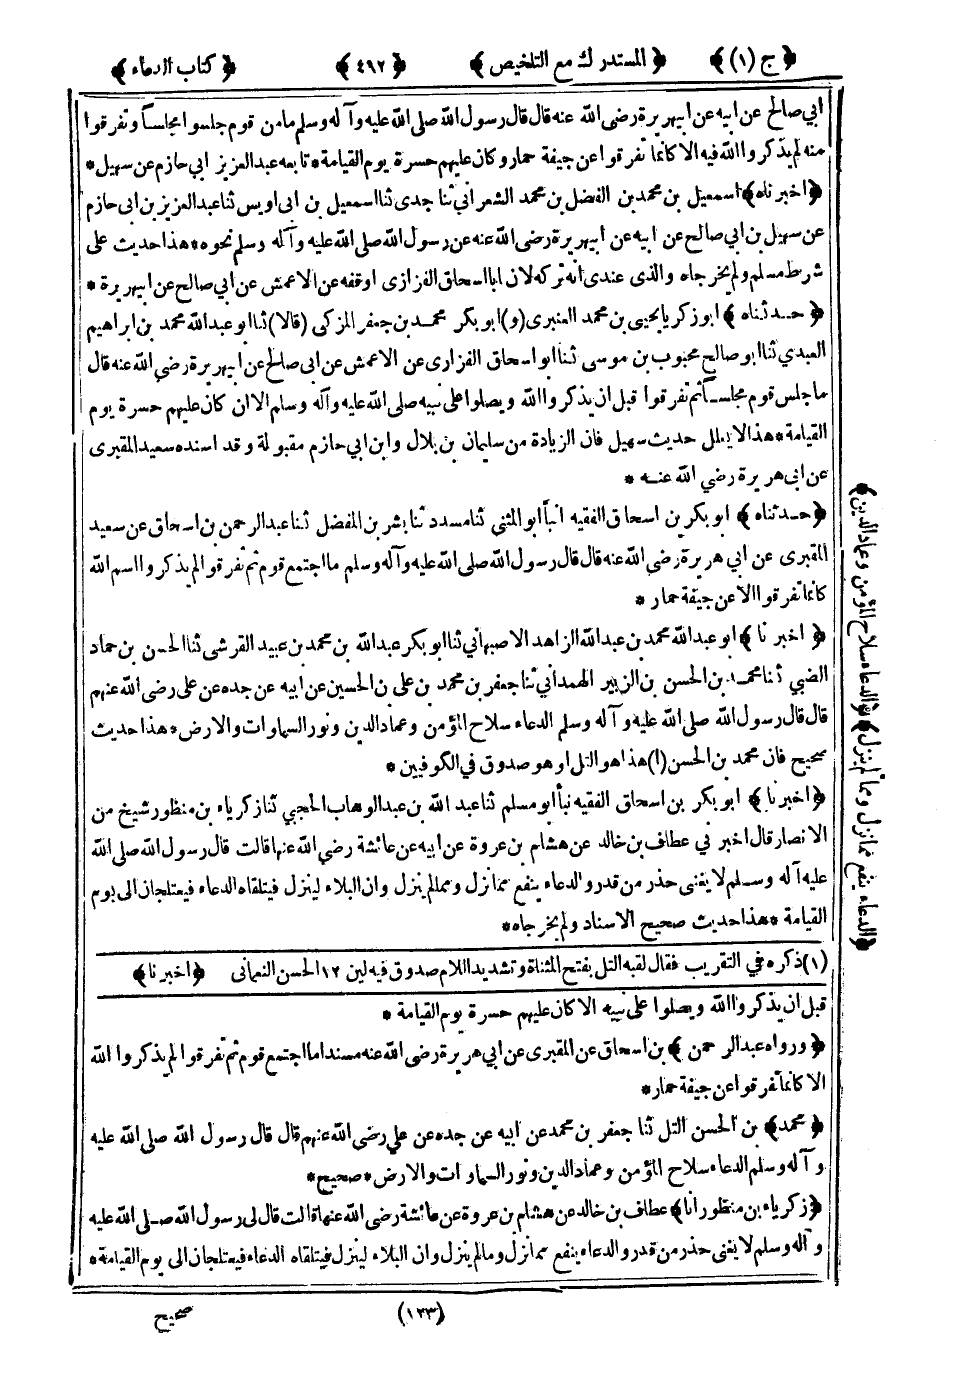 ﴿ ج (١) ﴾ ﴿ المستدرك مع التلخيص ﴾ ﴿ ٤٩٢ ﴾ ﴿ كتاب الدعاء ﴾
ابي صالح عن ابيه عن ابي هريرة رضى الله عنه قال قال رسول الله صلى الله عليه وآله وسلم ما من قوم جلسوا مجلساً وتفرقوا
منه لم يذكروا الله فيه الا كانما تفرقوا عن جيفة حمار وكان عليهم حسرة يوم القيامة * تابعه عبد العزيز ابي حازم عن سهيل *
﴿ اخبرناه ﴾ اسمعيل بن محمد بن الفضل بن محمد الشعراني ثنا جدى ثنا اسمعيل بن ابى اويس ثنا عبد العزيز بن ابى حازم
عن سهيل بن ابي صالح عن ابيه عن ابي هريرة رضى الله عنه عن رسول الله صلى الله عليه وآله وسلم نحوه * هذا حديث على
شرط مسلم ولم يخرجاه والذى عندى انه تركه لان ابا اسحاق الفزازى اوقفه عن الاعمش عن ابي صالح عن ابي هريرة *
﴿ حدثناه ﴾ ابو زكريا يحيى بن محمد العنبرى (و) ابو بكر محمد بن جعفر المزكى (قالا) ثنا ابو عبد الله محمد بن ابراهيم
العبدي ثنا ابو صالح محبوب بن موسى ثنا ابو اسحاق الفزارى عن الاعمش عن ابى صالح عن ابي هريرة رضى الله عنه قال
ما جلس قوم مجلسا ثم تفرقوا قبل ان يذكروا الله ويصلوا على نبيه صلى الله عليه وآله وسلم الا ان كان عليهم حسرة يوم
القيامة * هذا لا يعلل حديث سهيل فان الزيادة من سليمان بن بلال وابن ابي حازم مقبولة وقد اسنده سعيد المقبرى
عن ابى هريرة رضي الله عنه *
﴿ حدثناه ﴾ ابو بكر بن اسحاق الفقيه انبأ ابو المثنى ثنا مسدد ثنا بشر بن المفضل ثنا عبد الرحمن بن اسحاق عن سعيد
المقبرى عن ابي هريرة رضي الله عنه قال قال رسول الله صلى الله عليه وآله وسلم ما اجتمع قوم ثم تفرقوا لم يذكروا اسم الله
كانما تفرقوا الا عن جيفة حمار *
﴿ اخبرنا ﴾ ابو عبد الله محمد بن عبد الله الزاهد الاصبهاني ثنا ابو بكر عبد الله بن محمد بن عبيد القرشى ثنا الحسن بن حماد
الضبي ثنا محمد بن الحسن بن الزبير الهمداني ثنا جعفر بن محمد بن على بن الحسين عن ابيه عن جده عن على رضى الله عنهم
قال قال رسول الله صلى الله عليه وآله وسلم الدعاء سلاح المؤمن وعماد الدين ونور السماوات والارض * هذا حديث
صحيح فان محمد بن الحسن (١) هذا هو التل وهو صدوق في الكوفيين *
﴿ اخبرنا ﴾ ابو بكر بن اسحاق الفقيه نبأ ابو مسلم ثنا عبد الله بن عبد الوهاب الحجبي ثنا زكرياء بن منظور شيخ من
الانصار قال اخبرني عطاف بن خالد عن هشام بن عروة عن ابيه عن عائشة رضي الله عنها قالت قال رسول الله صلى الله
عليه آله وسلم لا يغنى حذر من قدر والدعاء ينفع مما نزل ومما لم ينزل وان البلاء لينزل فيتلقاه الدعاء فيعتلجان الى يوم
القيامة * هذا حديث صحيح الاسناد ولم يخرجاه *
(١) ذكره في التقريب فقال لقبه التل بفتح المثناة وتشديد اللام صدوق فيه لين ١٢ الحسن النعمانى ﴿ اخبرنا ﴾
قبل ان يذكروا الله ويصلوا على نبيه الا كان عليهم حسرة يوم القيامة *
﴿ ورواه عبد الرحمن ﴾ بن اسحاق عن المقبرى عن ابي هريرة رضى الله عنه مسندا ما اجتمع قوم ثم تفرقوا لم يذكروا الله
الا كانما تفرقوا عن جيفة حمار *
﴿ محمد ﴾ بن الحسن التل ثنا جعفر بن محمد عن ابيه عن جده عن علي رضى الله عنهم قال قال رسول الله صلى الله عليه
وآله وسلم الدعاء سلاح المؤمن وعماد الدين ونور السماوات والارض * صحيح *
﴿ زكرياء بن منظور انا ﴾ عطاف بن خالد عن هشام بن عروة عن عائشة رضى الله عنها قالت قال لى رسول الله صلى الله عليه
وآله وسلم لا يغنى حذر من قدر والدعاء ينفع مما نزل ومالم ينزل وان البلاء لينزل فيتلقاه الدعاء فيعتلجان الى يوم القيامة *
﴿ الدعاء ينفع مما نزل ومما لم ينزل ﴾ ﴿ الدعاء سلاح المؤمن وعماد الدين ﴾
(١٢٣)
صحيح